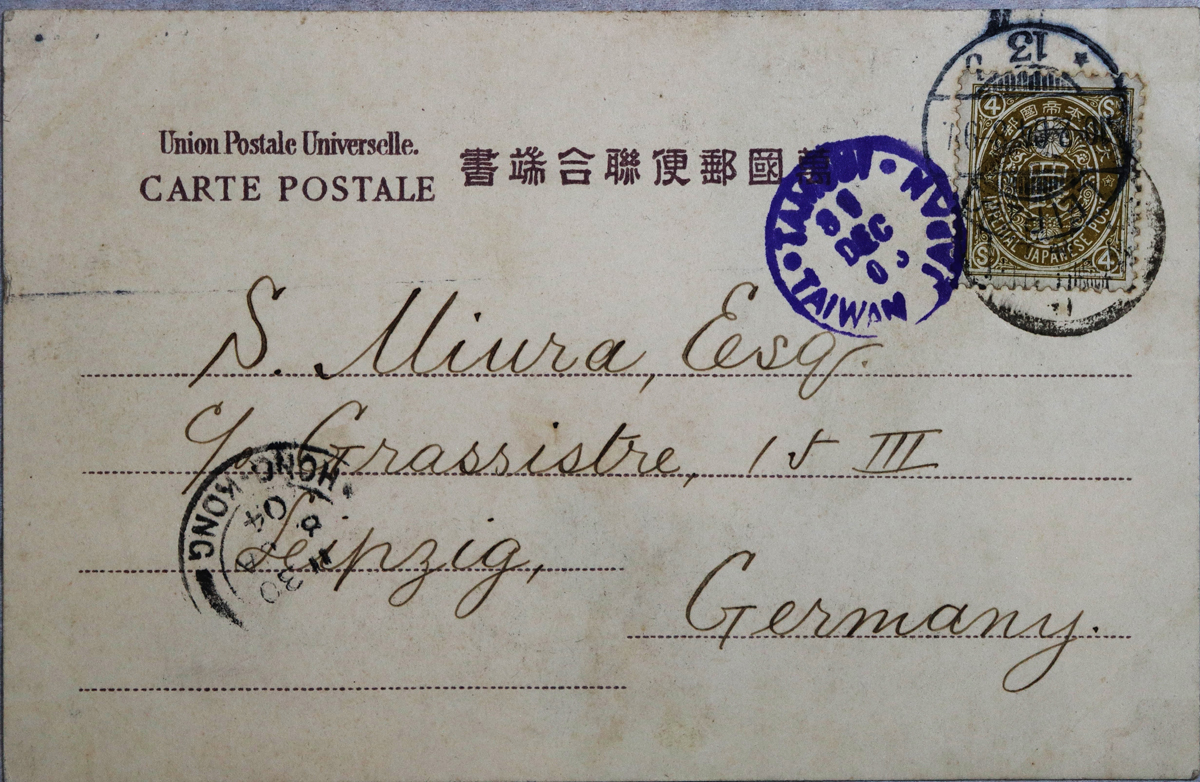 Union Postale Universelle.
CARTE POSTALE
萬國郵便聯合端書
13
4 S
帝國
IMPERIAL JAPANESE POST
S 4
JAPAN
DEC
TAIWAN
S. Miura, Esq.
c/o Grassistre, 15 III
Leipzig,
Germany.
HONG-KONG
30
04